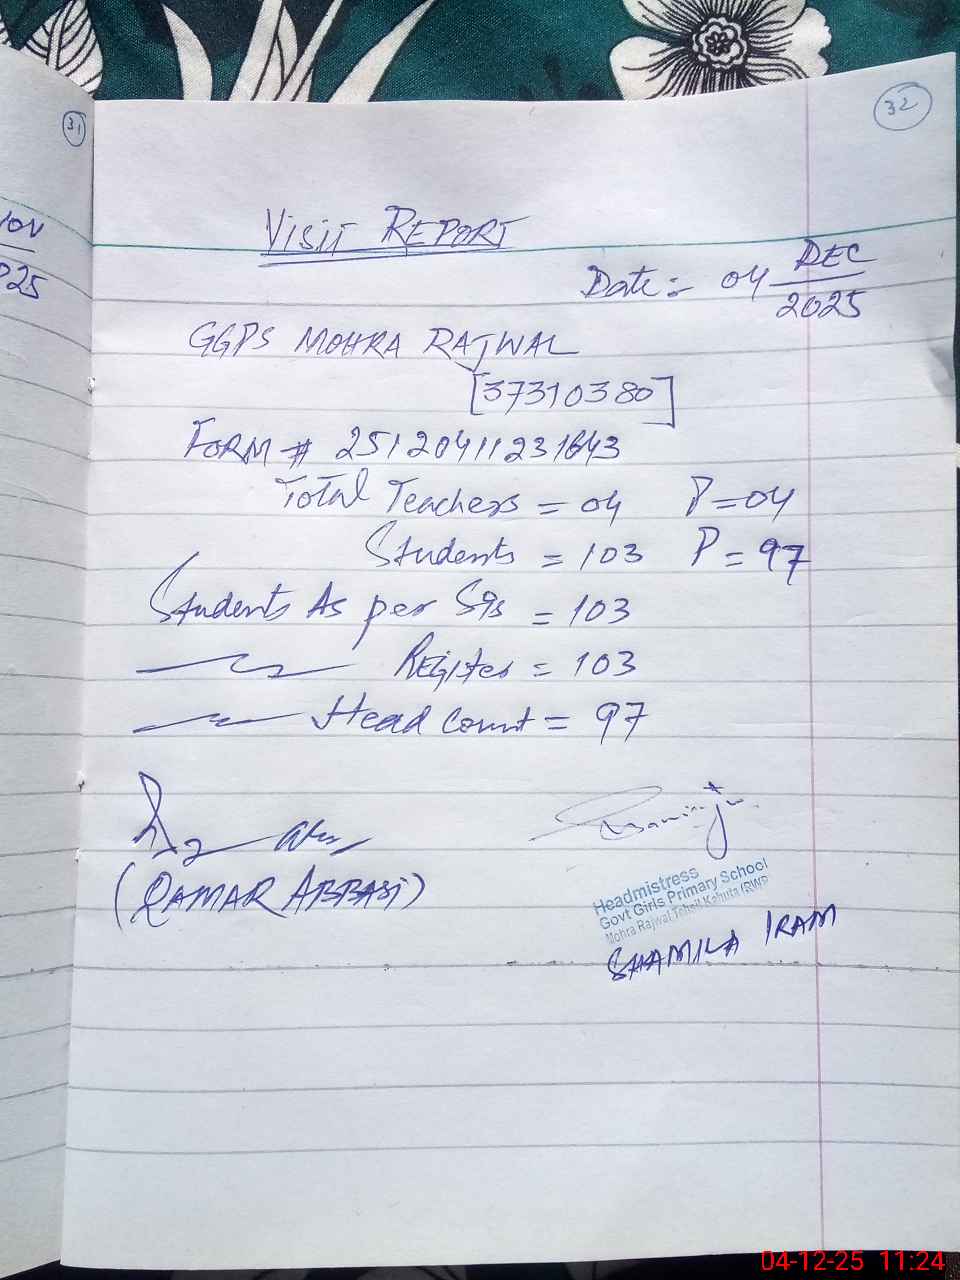 31
32
NOV
2025
VISIT REPORT
Date:- 04 DEC
2025
GGPS MOHRA RAJWAL
[37310380]
FORM # 25120411231643
Total Teachers = 04 P=04
Students = 103 P=97
Students As per SIS = 103
Register = 103
Head Count = 97
(QAMAR ABBASI)
Headmistress
Govt Girls Primary School
Mohra Rajwal Tehsil Kahuta (RWP
SHAMILA IRAM
04-12-25 11:24